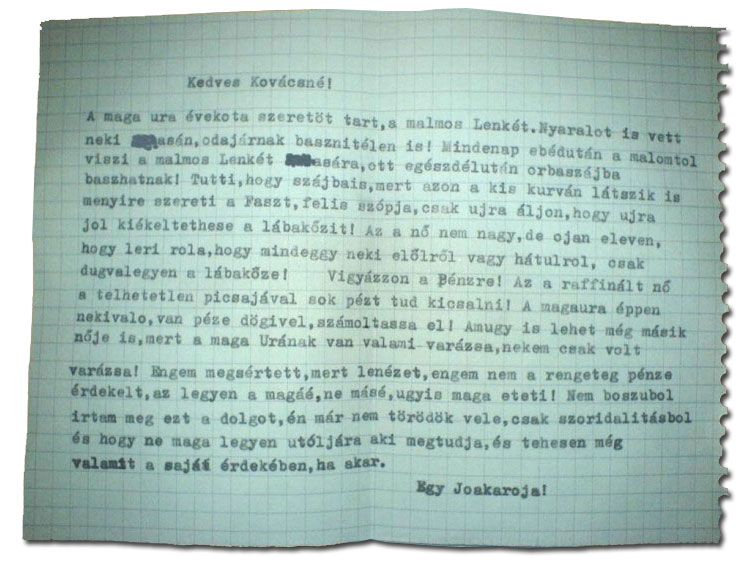 Kedves Kovácsné!
A maga ura évekota szeretöt tart,a malmos Lenkét.Nyaralot is vett
neki asán,odajárnak basznitélen is! Mindenap ebédután a malomtol
viszi a malmos Lenkét asára,ott egészdélután orbaszájba
baszhatnak! Tutti,hogy szájbais,mert azon a kis kurván látszik is
menyire szereti a Faszt,felis szópja,csak ujra áljon,hogy ujra
jol kiékeltethese a lábakőzit! Az a nő nem nagy,de ojan eleven,
hogy leri rola,hogy mindeggy neki előlről vagy hátulrol, csak
dugvalegyen a lábakőze! Vigyázzon a Pénzre! Az a raffinált nő
a telhetetlen picsajával sok pézt tud kicsalni! A magaura éppen
nekivalo,van péze dögivel,számoltassa el! Amugy is lehet még másik
nője is,mert a maga Urának van valami varázsa,nekem csak volt
varázsa! Engem megsértett,mert lenézet,engem nem a rengeteg pénze
érdekelt,az legyen a magáé,ne másé,ugyis maga eteti! Nem boszubol
irtam meg ezt a dolgot,én már nem törödök vele,csak szoridalitásbol
és hogy ne maga legyen utóljára aki megtudja,és tehesen még
valamit a saját érdekében,ha akar.
Egy Joakaroja!